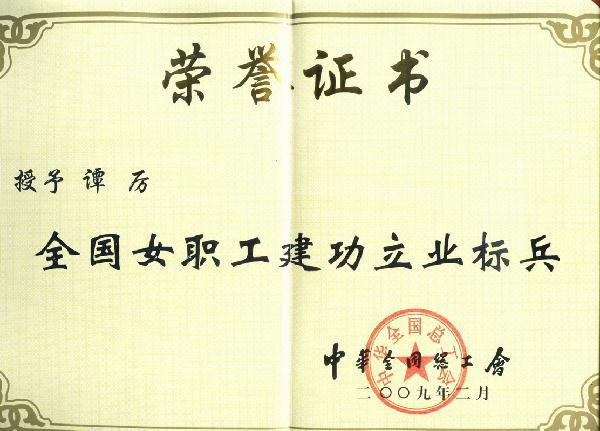 荣誉证书
授予 谭 厉
全国女职工建功立业标兵
中華全國總工會
中华全国总工会
二〇〇九年二月